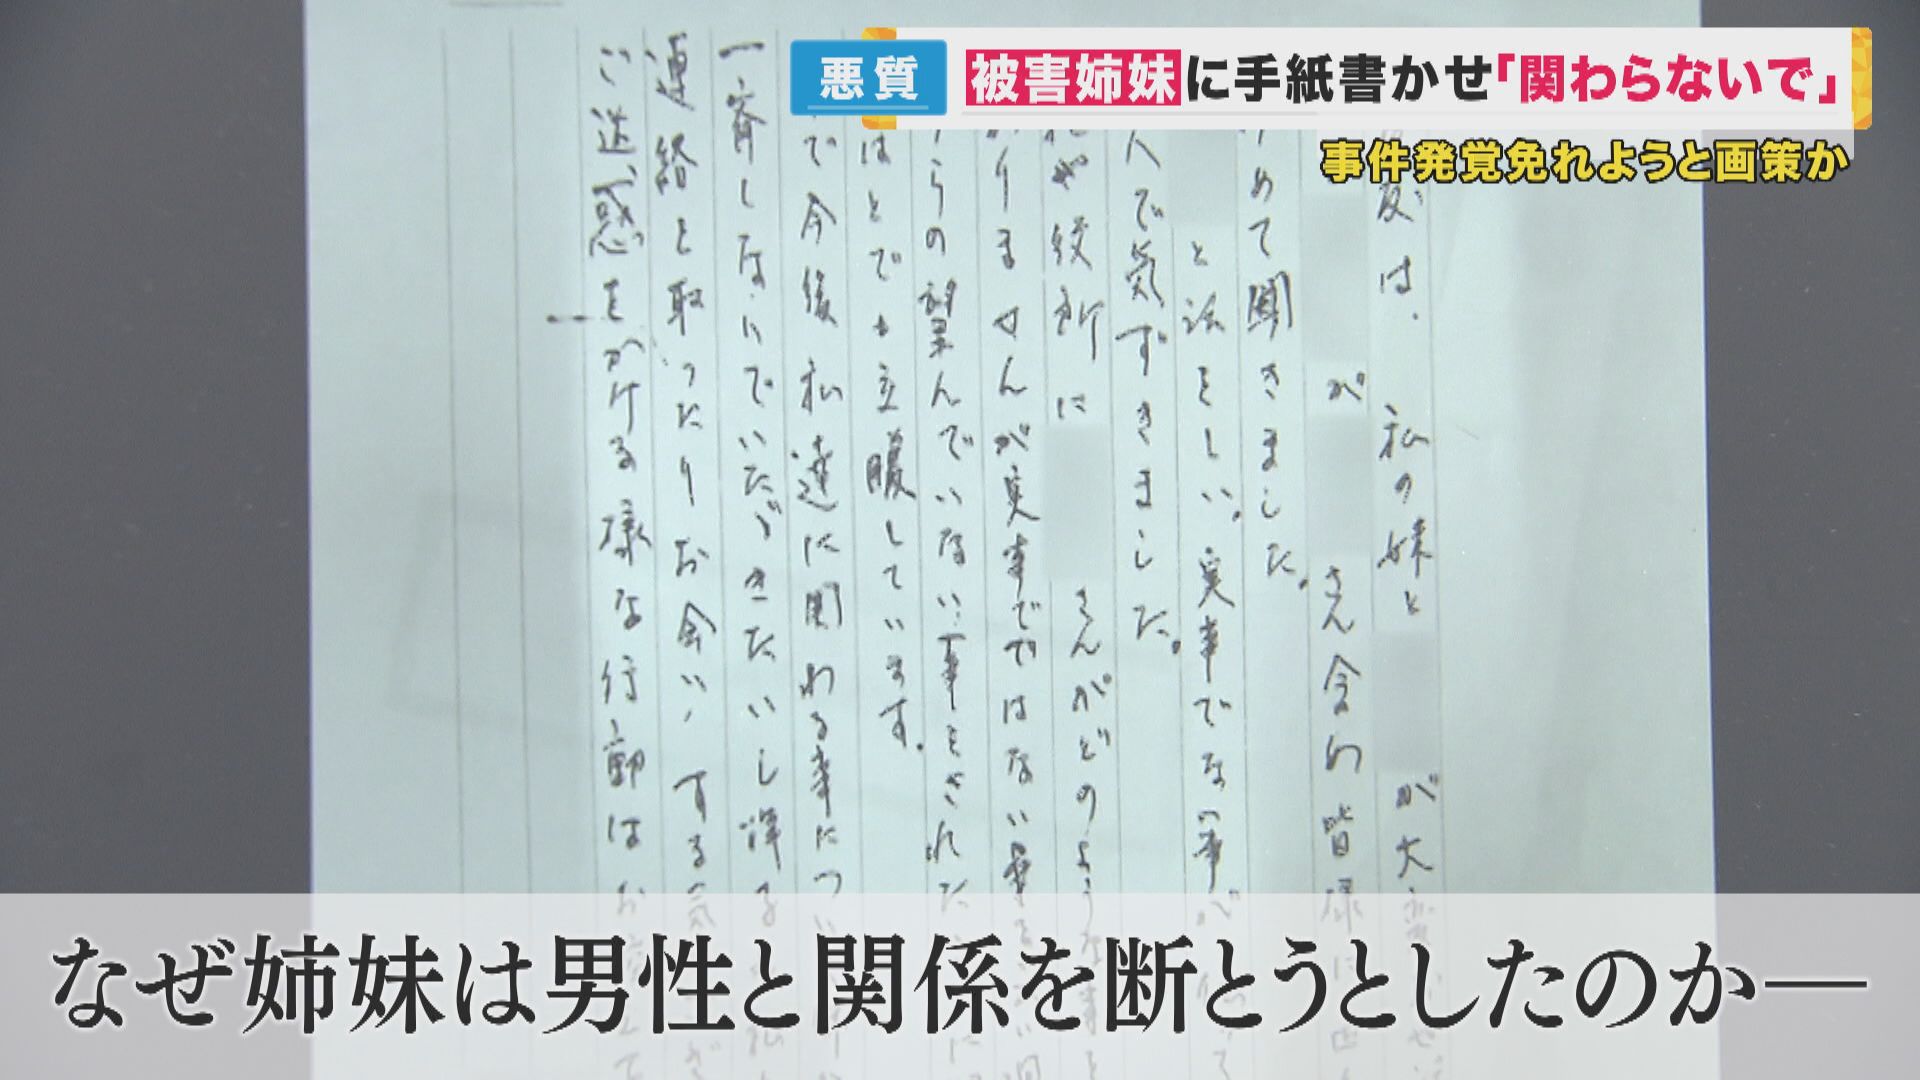 悪質
被害姉妹に手紙書かせ「関わらないで」
事件発覚免れようと画策か
は、私の妹と
が大
が
さん含め皆様に
めて聞きました。
と話をしい。実事でな事が
人で気ずきました。
に
さんがどのような事を
りませんが実事でではない事を
らの望んでいない事をされた
はとても立腹しています。
で今後私達に関わる事につい
一斉しないでいただきたいし
連絡を取ったりお会いする気が
ご迷惑をかける様な行動はお
なぜ姉妹は男性と関係を断とうとしたのか―